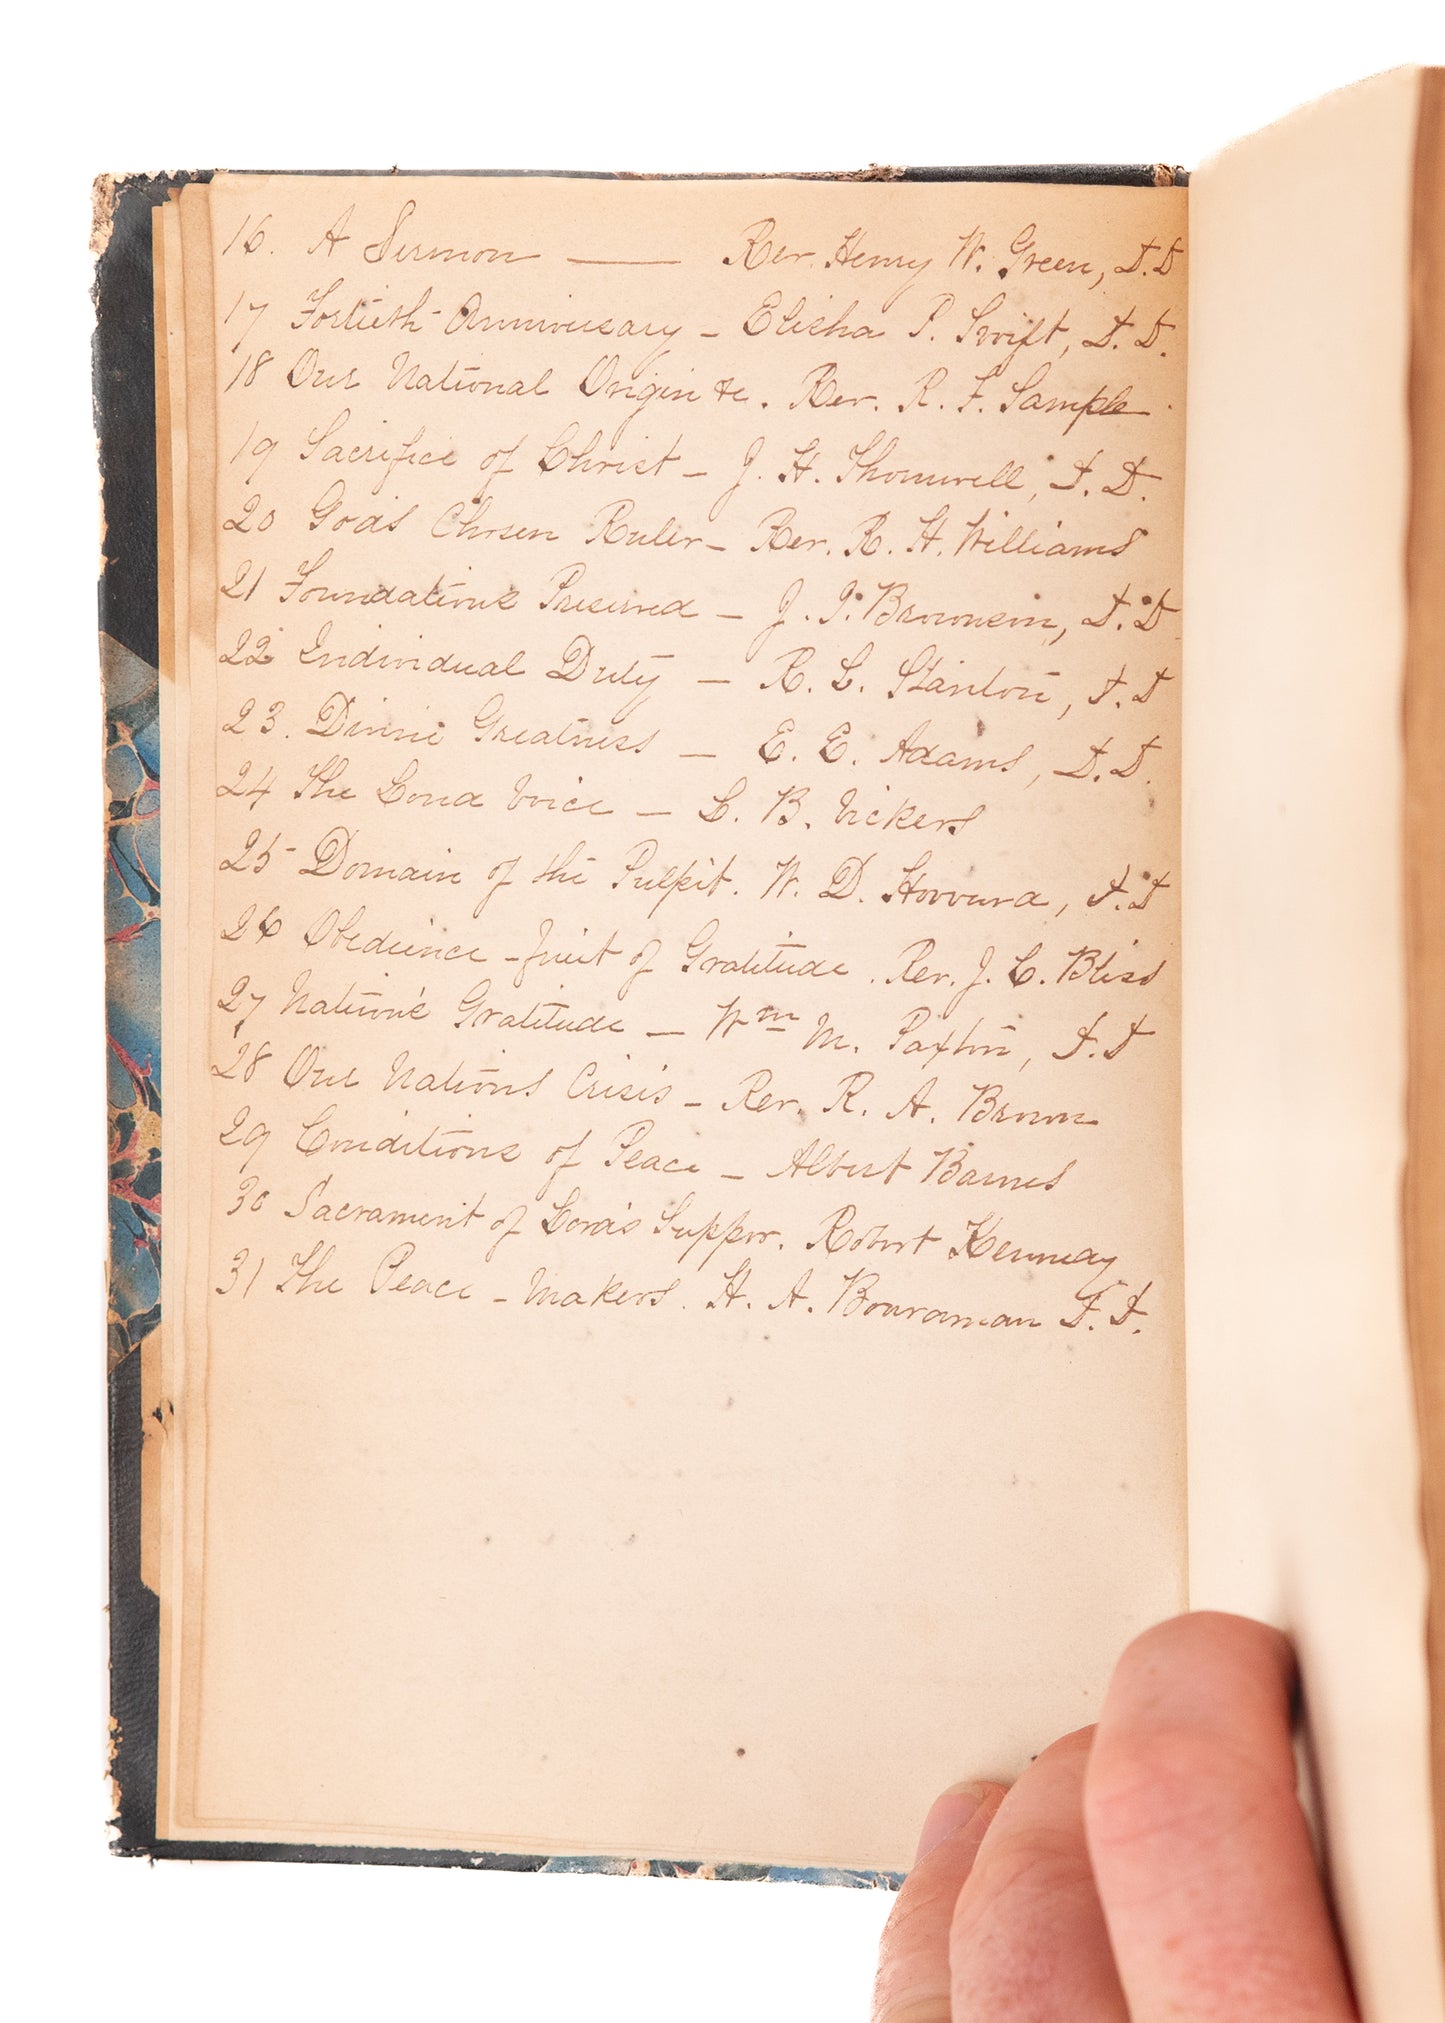 16. A Sermon — Rev. Henry W. Green, D.D
17 Fortieth Anniversary – Elisha P. Swift, D. D.
18 Our National Origin &c. Rev. R. F. Sample.
19 Sacrifice of Christ – J. H. Thornwell, D. D.
20 God's Chosen Ruler – Rev. R. H. Williams
21 Foundations Preserved – J. I. Brownson, D. D
22 Individual Duty – R. L. Stanton, D. D
23. Divine Greatness – E. E. Adams, D. D.
24 The Loud Voice – L. B. Vickers
25 Domain of the Pulpit. W. D. Howard, D. D
26 Obedience – fruit of Gratitude. Rev. J. C. Bliss
27 Nation's Gratitude – Wm M. Paxton, D. D
28 Our Nation's Crisis – Rev. R. A. Brown
29 Conditions of Peace – Albert Barnes
30 Sacrament of Lord's Supper. Robert Kennedy
31 The Peace – Makers. H. A. Boardman D. D.